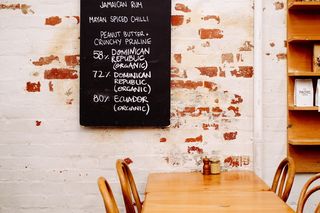 JAMAICAN RUM
MAYAN SPICED CHILLI
PEANUT BUTTER +
CRUNCHY PRALINE
58% DOMINICAN
REPUBLIC
(ORGANIC)
72% DOMINICAN
REPUBLIC
(ORGANIC)
80% ECUADOR
(ORGANIC)